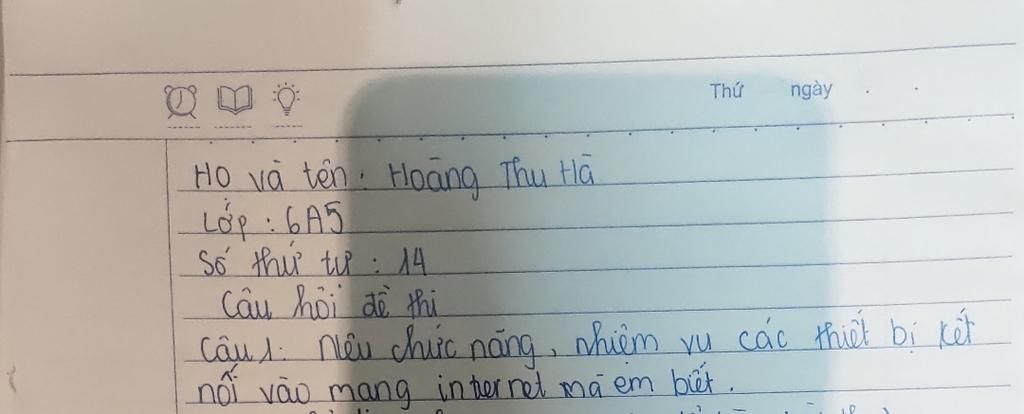 Thứ ngày
Họ và tên: Hoàng Thu Hà
Lớp: 6A5
Số thứ tự: 14
Câu hỏi đề thi
Câu 1: Nêu chức năng, nhiệm vụ các thiết bị kết
nối vào mạng internet mà em biết.